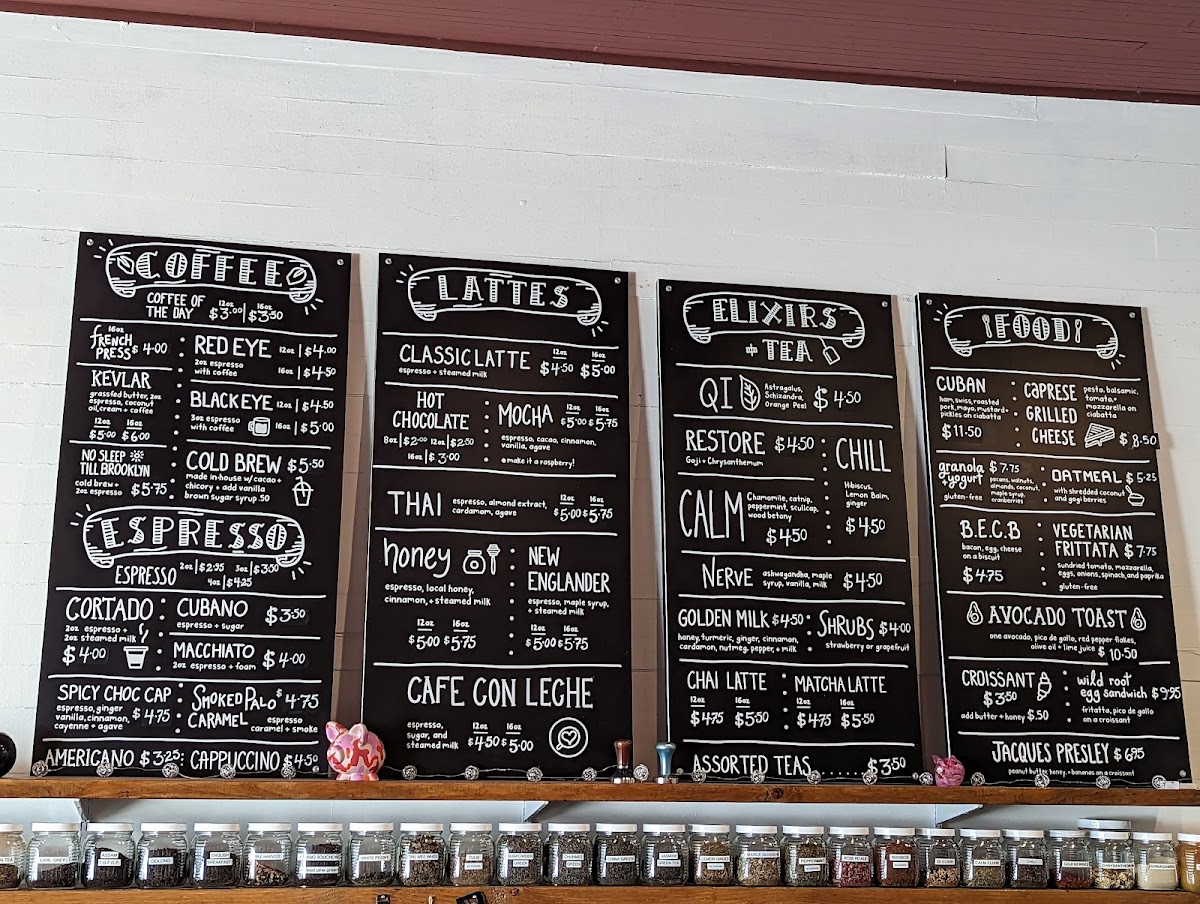 COFFEE
COFFEE OF THE DAY 12oz $3.00 | 16oz $3.50
16oz
french PRESS $4.00
RED EYE 12oz | $4.00
2oz espresso with coffee 16oz | $4.50
KEVLAR
grassfed butter, 2oz espresso, coconut oil, cream + coffee
12oz $5.00 16oz $6.00
BLACK EYE 12oz | $4.50
3oz espresso with coffee 16oz | $5.00
NO SLEEP TILL BROOKLYN
cold brew + 2oz espresso $5.75
COLD BREW $5.50
made in-house w/ cacao + chicory + add vanilla brown sugar syrup .50
ESPRESSO
ESPRESSO 2oz | $2.95 3oz | $3.50
4oz | $4.25
CORTADO
2oz espresso + 2oz steamed milk
$4.00
CUBANO $3.50
espresso + sugar
MACCHIATO $4.00
2oz espresso + foam
SPICY CHOC CAP
espresso, ginger vanilla, cinnamon, cayenne + agave $4.75
SMOKED PALO CARAMEL $4.75
espresso caramel + smoke
AMERICANO $3.25 : CAPPUCCINO $4.50
LATTES
CLASSIC LATTE 12oz $4.50 16oz $5.00
espresso + steamed milk
HOT CHOCOLATE
8oz | $2.00 12oz | $2.50
16oz | $3.00
MOCHA 12oz $5.00 16oz $5.75
espresso, cacao, cinnamon, vanilla, agave
make it a raspberry!
THAI espresso, almond extract, cardamom, agave 12oz $5.00 16oz $5.75
honey
espresso, local honey, cinnamon, + steamed milk
12oz $5.00 16oz $5.75
NEW ENGLANDER
espresso, maple syrup, + steamed milk
12oz $5.00 16oz $5.75
CAFE CON LECHE
espresso, sugar, and steamed milk 12oz $4.50 16oz $5.00
ELIXIRS
+ TEA
QI Astragalus, Schizandra, Orange Peel $4.50
RESTORE $4.50
Goji + Chrysanthemum
CHILL
Hibiscus, Lemon Balm, ginger
$4.50
CALM Chamomile, catnip, peppermint, scullcap, wood betony
$4.50
NERVE ashwagandha, maple syrup, vanilla, milk $4.50
GOLDEN MILK $4.50
honey, turmeric, ginger, cinnamon, cardamom, nutmeg, pepper, + milk
SHRUBS $4.00
strawberry or grapefruit
CHAI LATTE
12oz $4.75 16oz $5.50
MATCHA LATTE
12oz $4.75 16oz $5.50
ASSORTED TEAS ...... $3.50
FOOD
CUBAN
ham, swiss, roasted pork, mayo, mustard + pickles on ciabatta
$11.50
CAPRESE GRILLED CHEESE
pesto, balsamic, tomato, + mozzarella on ciabatta
$8.50
granola + yogurt $7.75
pecans, walnuts, almonds, coconut, maple syrup, cranberries
gluten-free
OATMEAL $5.25
with shredded coconut and goji berries
B.E.C.B
bacon, egg, cheese on a biscuit
$4.75
VEGETARIAN FRITTATA $7.75
sundried tomato, mozzarella, eggs, onions, spinach, and paprika
gluten-free
AVOCADO TOAST
one avocado, pico de gallo, red pepper flakes, olive oil + lime juice $10.50
CROISSANT
$3.50
add butter + honey $.50
wild root egg sandwich $9.95
fritatta, pico de gallo on a croissant
JACQUES PRESLEY $6.95
peanut butter, honey, + bananas on a croissant
EARL GREY
ASSAM
OOLONG
ENGLISH BREAKFAST
WHITE PEONY
GUNPOWDER
CHUNMEE GREEN
CHINA GREEN
JASMINE GREEN TEA
LEMON GINGER
PEPPERMINT
ROSE PETALS
ROOIBOS
CALM
CHILL
GOJI BERRIES
CHRYSANTHEMUM
ASHWAGANDHA